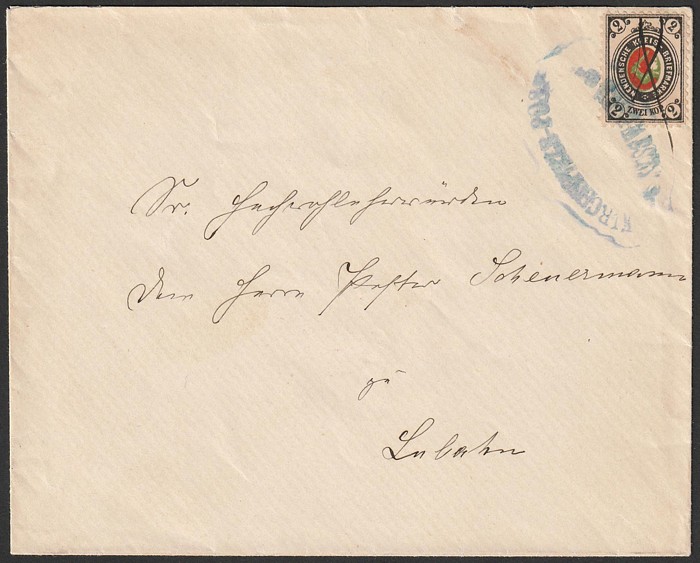 2 2
WENDENSCHE KREIS-BRIEFMARKE
2 ZWEI KOP 2
KIRCHSPIELS-
Sr. Hochwohlehrwürden
dem Herrn Pastor Scheuermann
zu
Lubahn